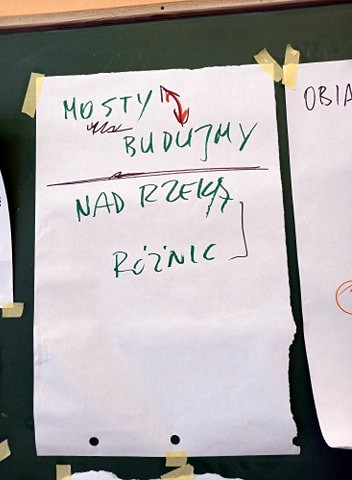 MOSTY
BUDUJMY
NAD RZEKĄ
RÓŻNIC
OBIA